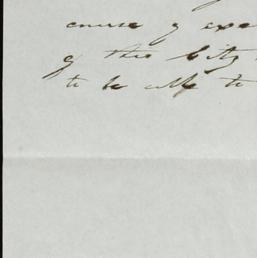 course of exa
of this City
to be able to